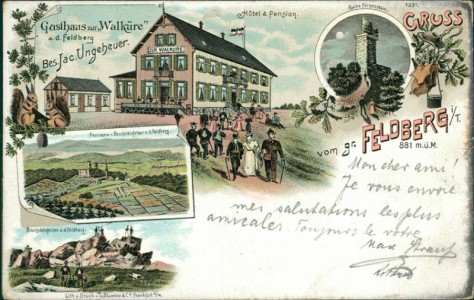 Gasthaus zur „Walküre"
a. d. Feldberg
Bes. Jac. Ungeheuer.
Hôtel & Pension.
ZUR WALKÜRE
GRUSS
vom gr. FELDBERG i/T.
881 m.ü.M.
Panorama v. Brunhildisfelsen a. d. Feldberg.
Brunhildisfelsen a. d. Feldberg.
Mon cher ami!
Je vous envoie
mes salutations les plus
amicales. Toujours le votre
Max Strauss